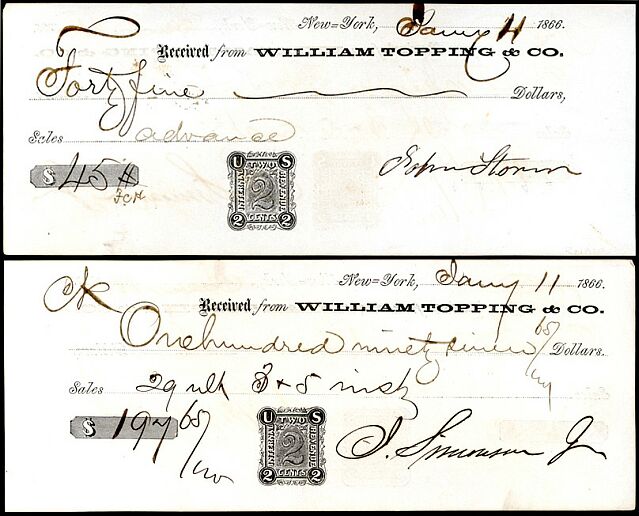 New=York, Jany 11 1866.
Received from WILLIAM TOPPING & CO.
Forty five Dollars,
Sales advance
$ 45
U S
INTERNAL TWO REVENUE
2
2 CENTS 2
John Storm
New=York, Jany 11 1866.
Received from WILLIAM TOPPING & CO.
One hundred ninety seven 65/100 Dollars.
Sales 29 ult 3 & 5 inst
$ 197 65/100
U S
INTERNAL TWO REVENUE
2
2 CENTS 2
J. Simonson Jr